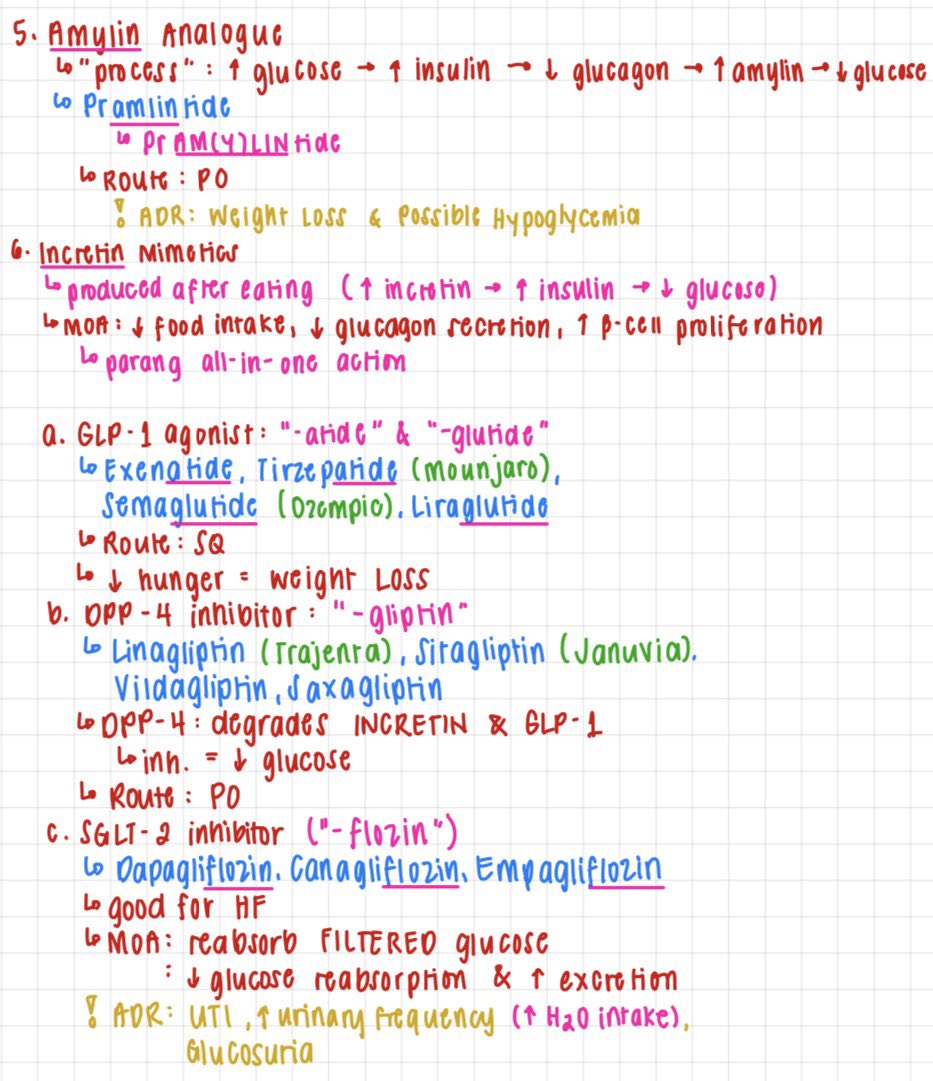 5. Amylin Analogue
↳ "process" : ↑ glucose → ↑ insulin → ↓ glucagon → ↑ amylin → ↓ glucose
↳ Pramlintide
↳ PrAM(Y)LINtide
↳ Route : PO
! ADR: Weight Loss & Possible Hypoglycemia
6. Incretin Mimetics
↳ produced after eating (↑ incretin → ↑ insulin → ↓ glucose)
↳ MOA: ↓ food intake, ↓ glucagon secretion, ↑ β-cell proliferation
↳ parang all-in-one action
a. GLP-1 agonist: "-atide" & "-glutide"
↳ Exenatide, Tirzepatide (Mounjaro),
Semaglutide (Ozempic), Liraglutide
↳ Route : SQ
↳ ↓ hunger = weight Loss
b. DPP-4 inhibitor : "-gliptin"
↳ Linagliptin (Trajenta), Sitagliptin (Januvia),
Vildagliptin, Saxagliptin
↳ DPP-4: degrades INCRETIN & GLP-1
↳ inh. = ↓ glucose
↳ Route : PO
c. SGLT-2 inhibitor ("-flozin")
↳ Dapagliflozin, Canagliflozin, Empagliflozin
↳ good for HF
↳ MOA: reabsorb FILTERED glucose
: ↓ glucose reabsorption & ↑ excretion
! ADR: UTI, ↑ urinary frequency (↑ H2O intake),
Glucosuria